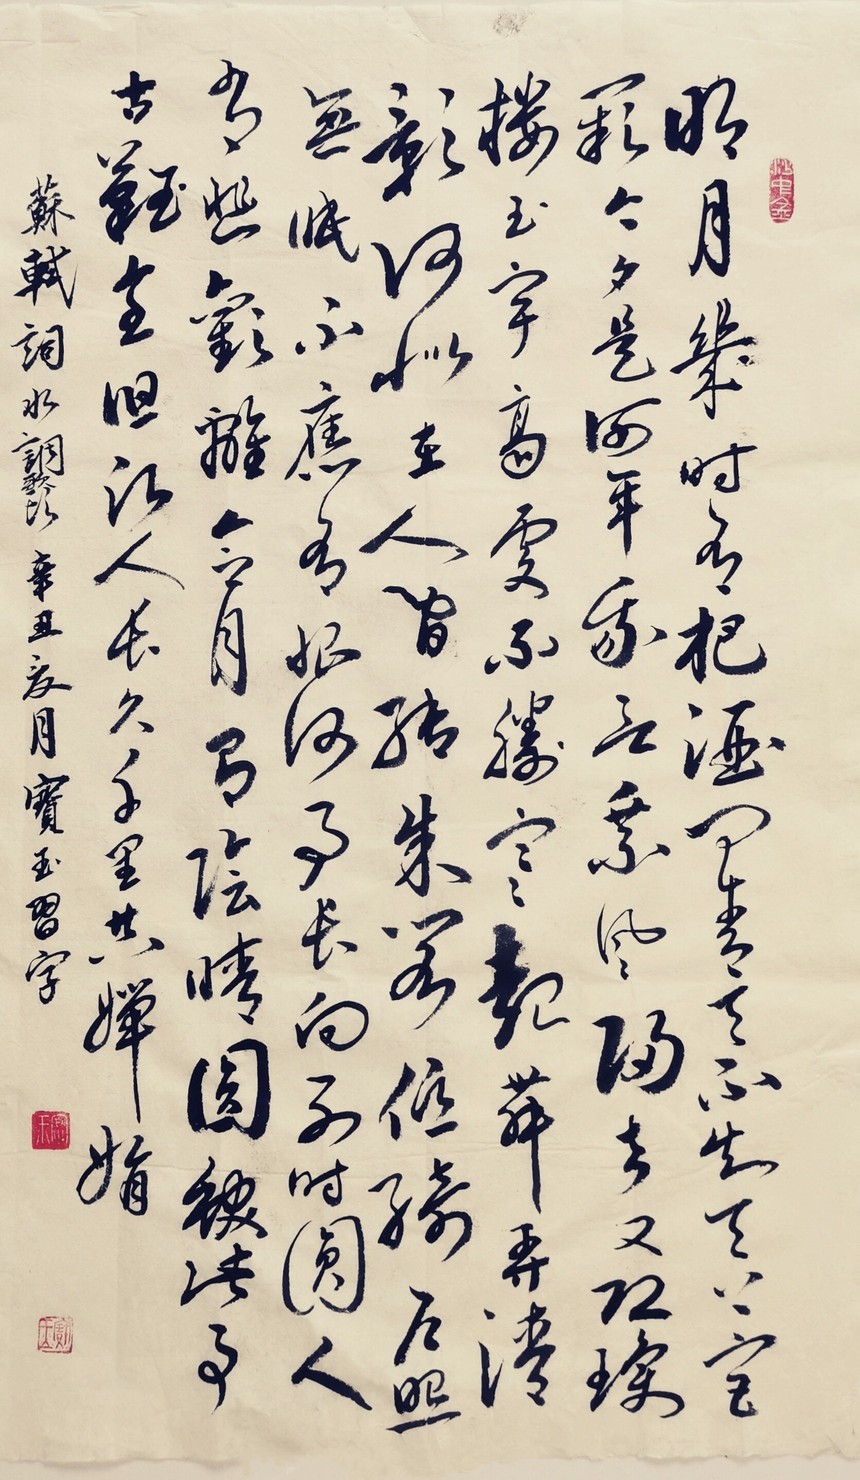 明月幾時有把酒問青天不知天上宫
闕今夕是何年我欲乘風歸去又恐瓊
樓玉宇高處不勝寒起舞弄清
影何似在人間轉朱閣低綺户照
無眠不應有恨何事長向别時圓人
有悲歡離合月有陰晴圓缺此事
古難全但願人長久千里共嬋娟
蘇軾詞水調歌頭辛丑夏月寶玉習字